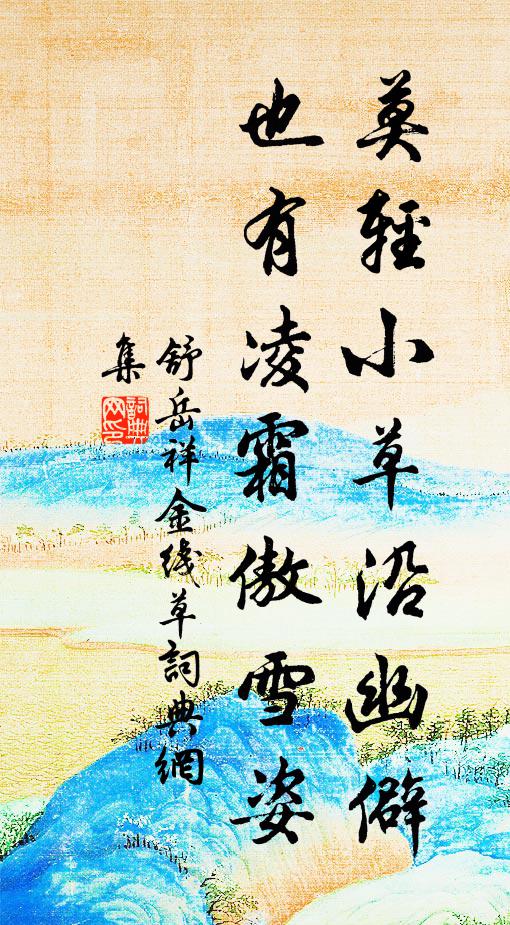 莫輕小草沿幽僻
也有凌霜傲雪姿
舒岳祥金綫草詞典網
集
詞典
网印